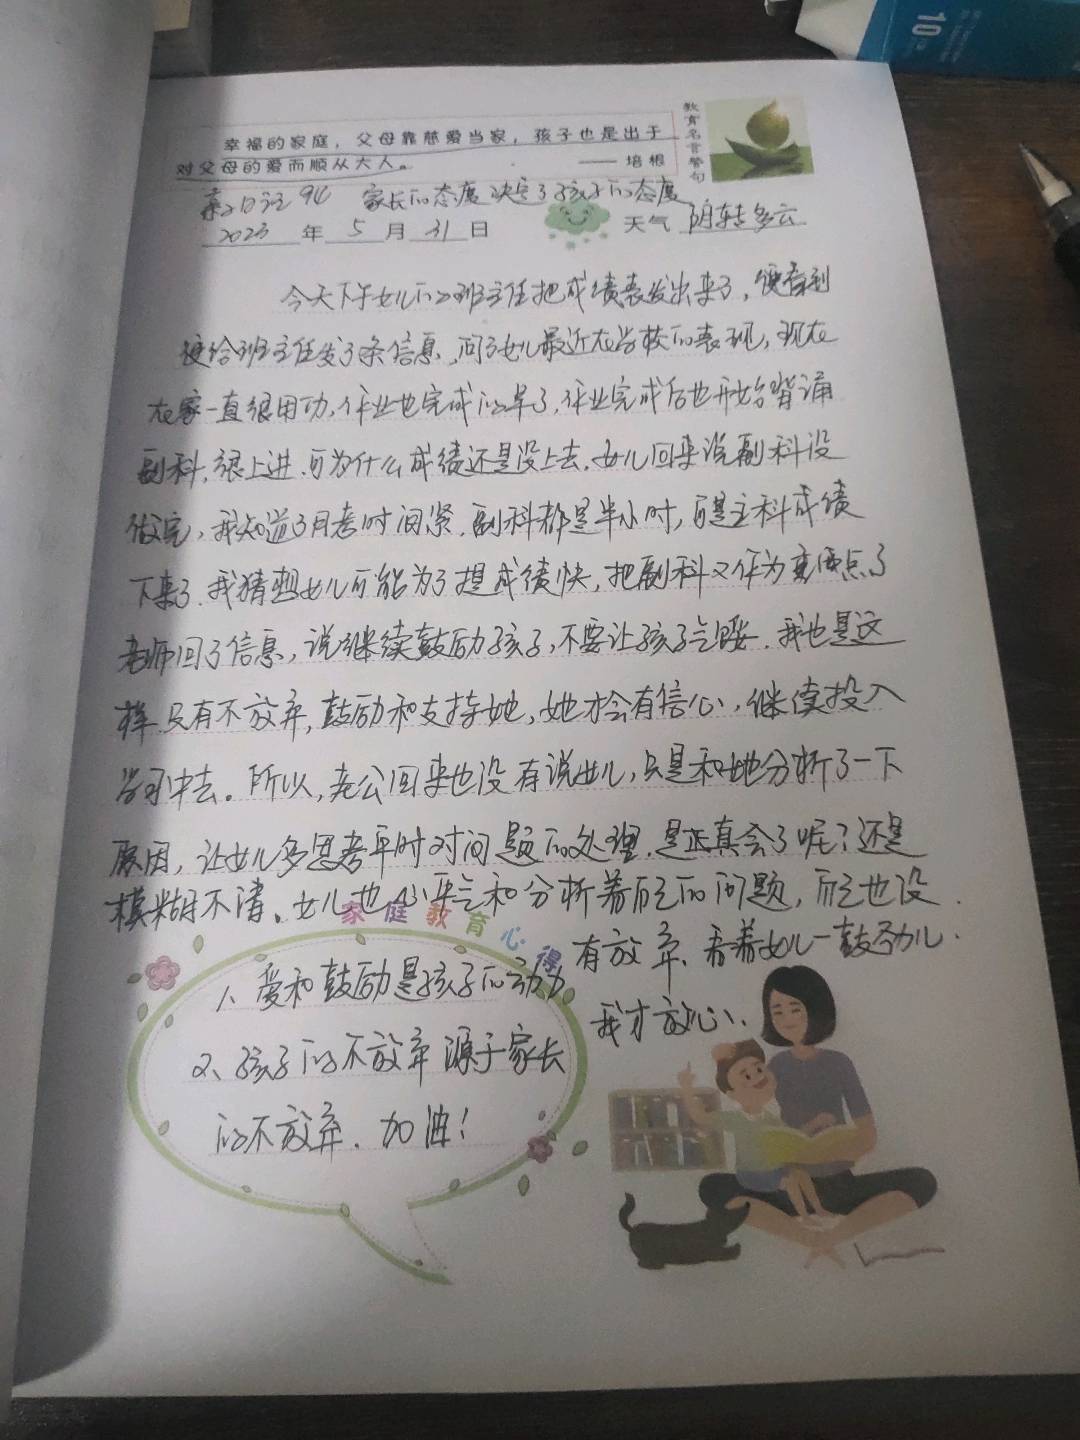 幸福的家庭，父母靠慈爱当家，孩子也是出于
对父母的爱而顺从大人。 —— 培根
教育名言警句
亲子日记 94 家长的态度决定了孩子的态度
2023 年 5 月 31 日 天气 阴转多云
今天下午女儿的班主任把成绩表发出来了，便看到
便给班主任发了条信息，问了女儿最近在学校的表现，现在
在家一直很用功，作业也完成的早了，作业完成后也开始背诵
副科，很上进，可为什么成绩还是没上去，女儿回来说副科没
做完，我知道了月考时间紧，副科都是半小时，可是主科成绩
下来了，我猜想女儿可能为了提成绩快，把副科又作为重点了
老师回了信息，说继续鼓励孩子，不要让孩子气馁，我也是这
样，只有不放弃，鼓励和支持她，她才会有信心，继续投入
学习中去。所以，老公回来也没有说女儿，只是和她分析了一下
原因，让女儿多思考平时对问题的处理，是真会了呢？还是
模糊不清。女儿也心平气和分析着自己的问题，自己也没
有放弃、看着女儿一鼓劲儿．
我才放心、
家庭教育心得
1、爱和鼓励是孩子的动力
2、孩子的不放弃源于家长
的不放弃．加油！
10